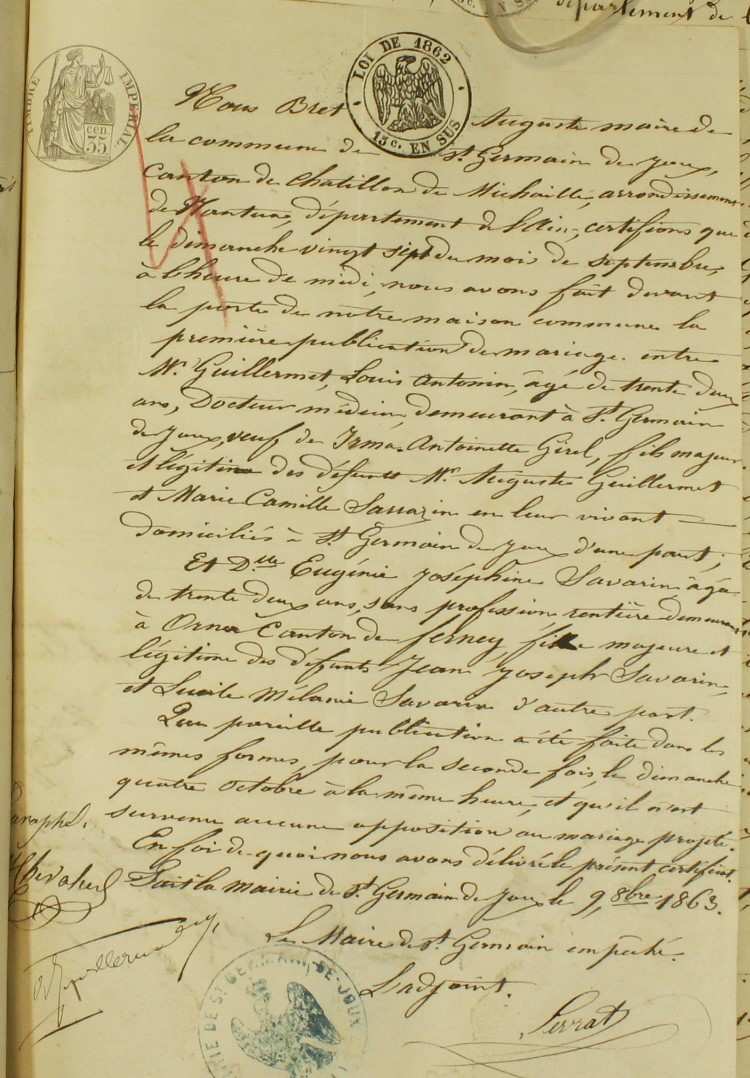 département de l
TIMBRE IMPERIAL
35 cen.
LOI DE 1862
15c. EN SUS
Nous Bret Auguste maire de
la commune de St Germain de Joux,
Canton de Chatillon de Michaille, arrondissement
de Nantua, département de l'Ain, certifions que
le dimanche vingt sept du mois de septembre,
à l'heure de midi, nous avons fait devant
la porte de notre maison commune la
première publication de mariage entre
Mr. Guillermet, Louis Antonin, âgé de trente deux
ans, Docteur médecin, demeurant à St. Germain
de Joux, veuf de Irma Antoinette Girel, fils majeur
et légitime des défunts Mr. Auguste Guillermet
et Marie Camille Sarrazin en leur vivant
domiciliés à St. Germain de Joux d'une part;
Et Dlle Eugénie Joséphine Savarin, âgée
de trente deux ans, sans profession rentière demeurant
à Ornex Canton de Ferney fille majeure et
légitime des défunts Jean Joseph Savarin,
et Lucile Mélanie Savarin d'autre part.
Que pareille publication a été faite dans les
mêmes formes, pour la seconde fois, le dimanche
quatre octobre à la même heure, et qu'il n'est
survenu aucune opposition au mariage projeté.
En foi de quoi nous avons délivré le présent certificat.
Fait la mairie de St Germain de Joux le 9, 8bre 1863.
Le Maire de St. Germain empêché.
L'adjoint.
Serrat
Paraphé.
MAIRIE DE ST GERMAIN-DE-JOUX